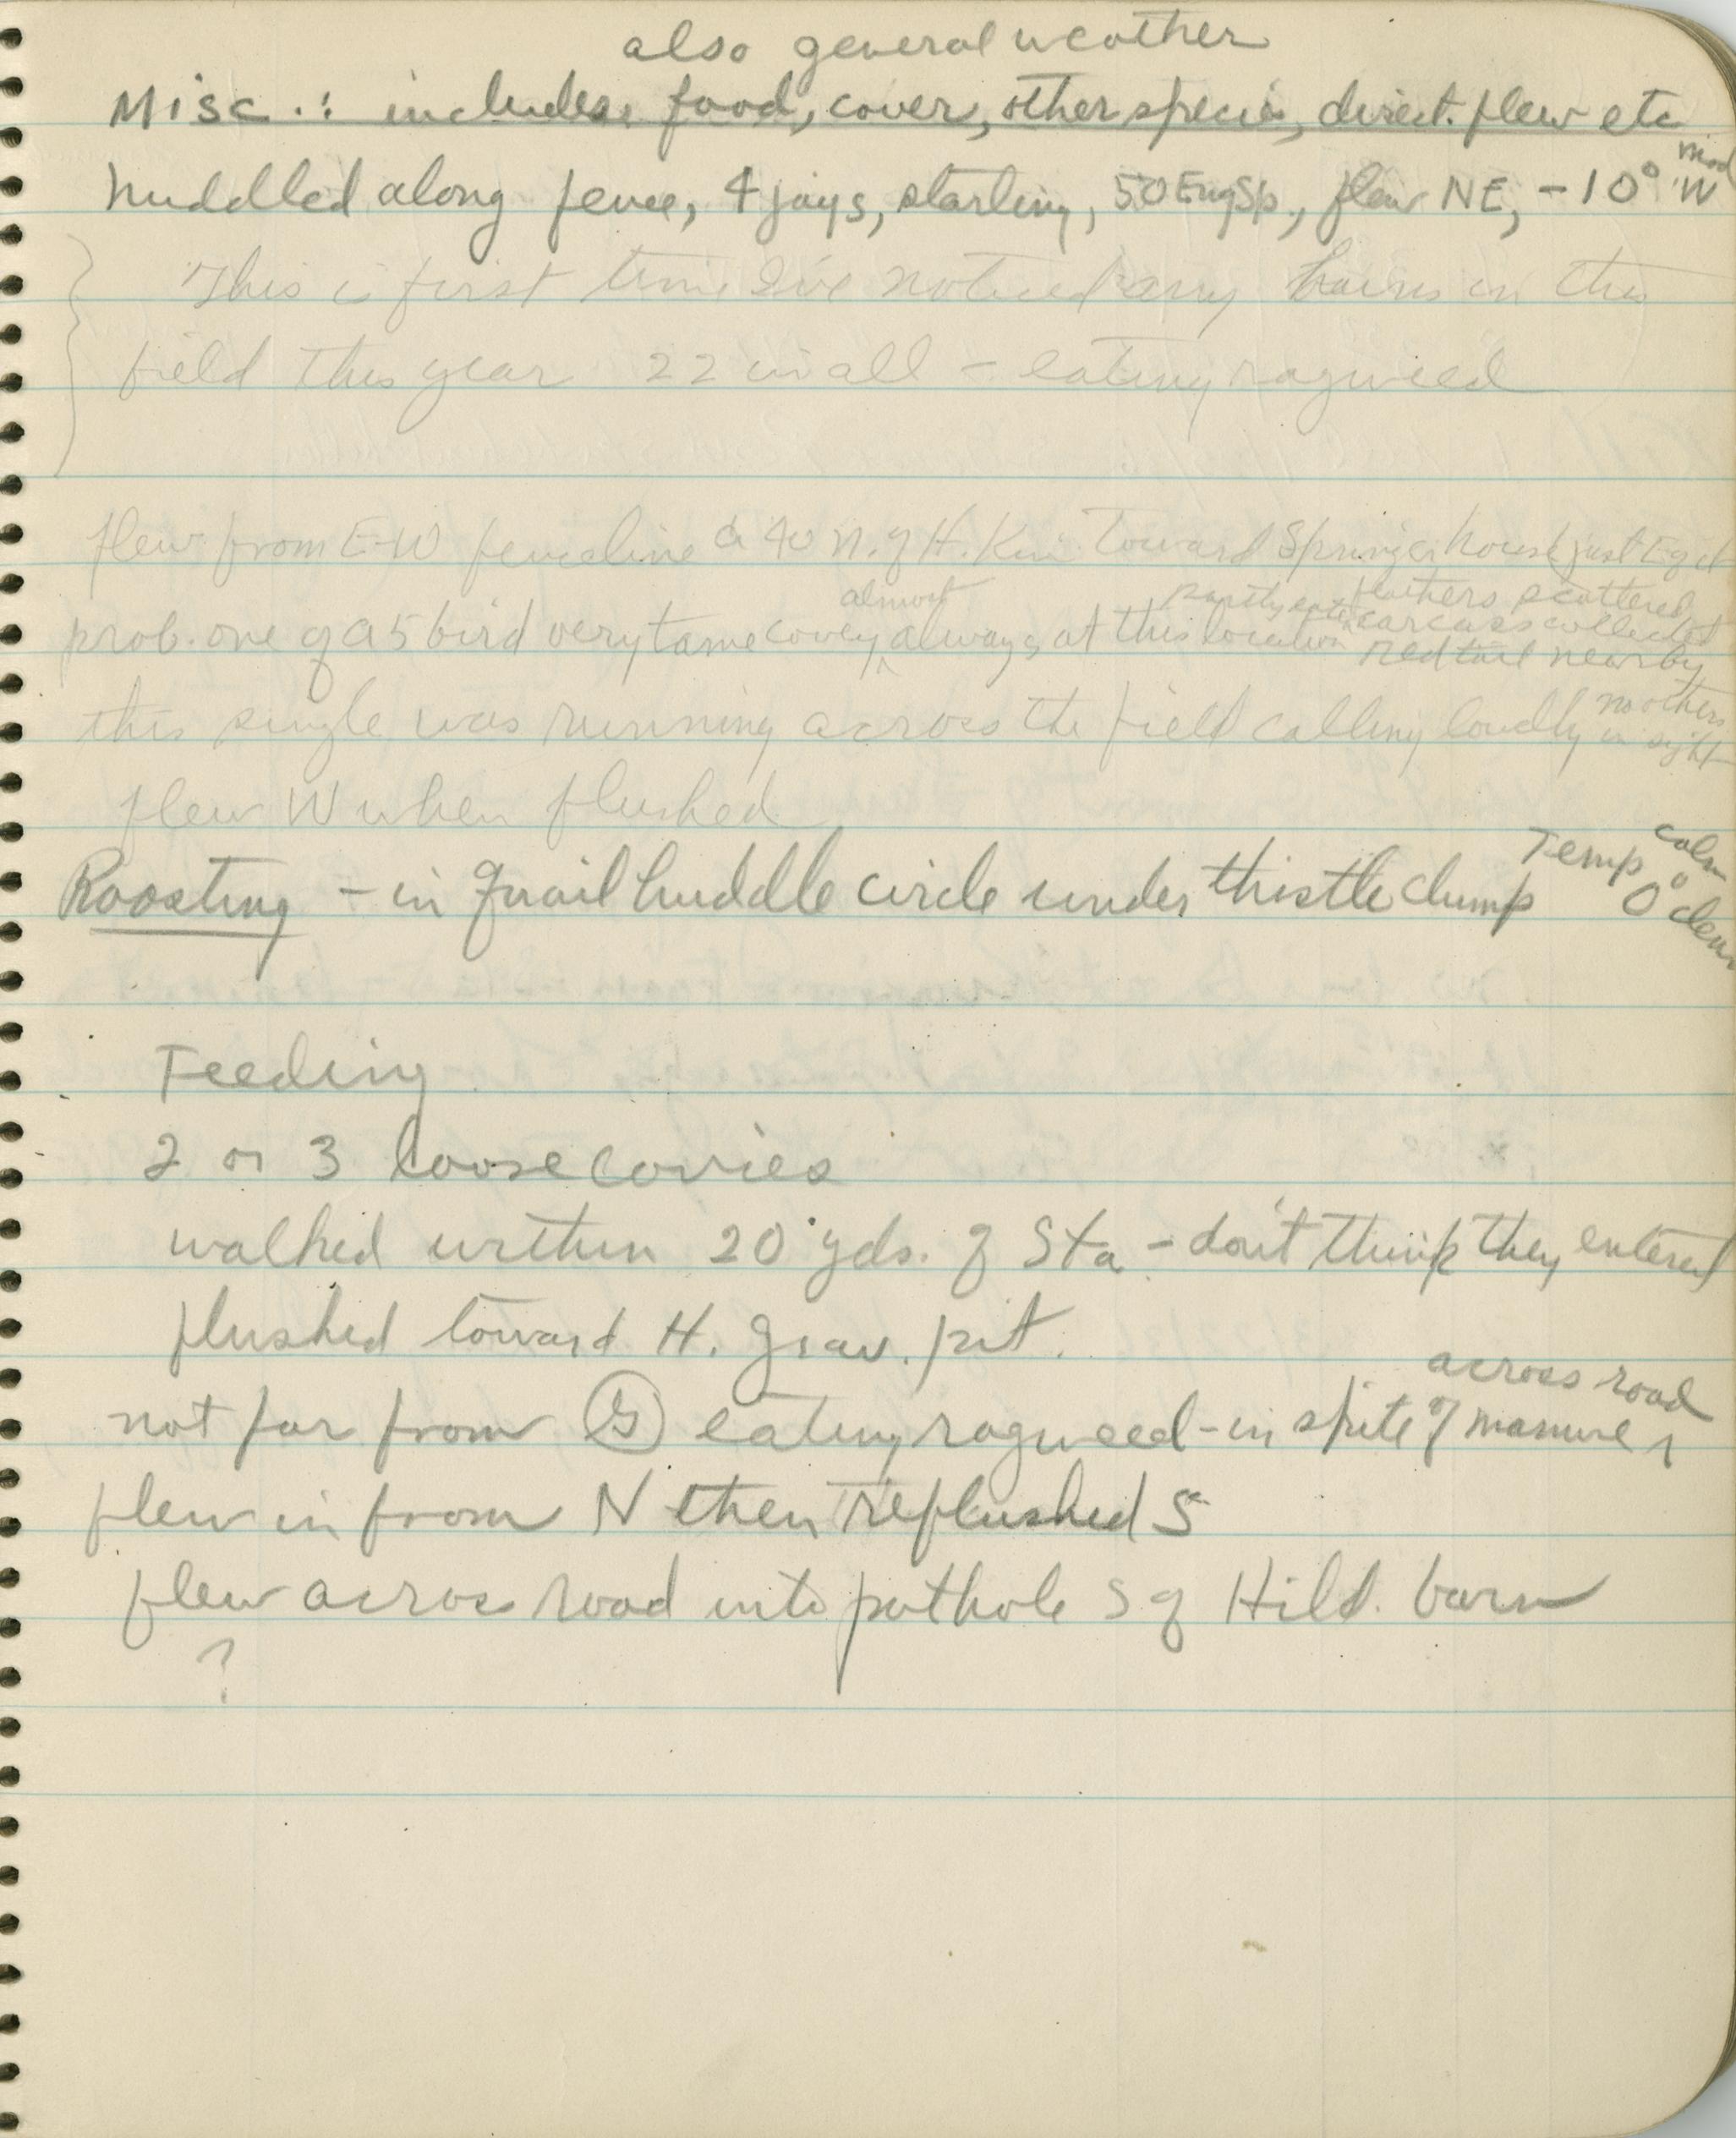 also general weather
Misc.: includes food, cover, other species, direct. flew etc
huddled along fence, 4 jays, starling, 50 Eng Sp., flew NE, -10° mod W
This is first time I've noticed any huns in this
field this year 22 in all - eating ragweed
flew from E-W fenceline a 40 N. of H. Kui toward Springer house just E of it
prob. one of a 5 bird very tame covey almost always at this location partly eaten carcass collected feathers scattered red tail nearby
this single was running across the field calling loudly no others in sight
flew W when flushed
Roosting - in quail huddle circle under thistle clump Temp 0° calm clear
Feeding
2 or 3 loose covies
walked within 20 yds. of Sta - don't think they entered
flushed toward H. grav. pit.
not far from G eating ragweed - in spite of manure across road
flew in from N then reflushed S
flew across road into pothole S of Hild. barn
?